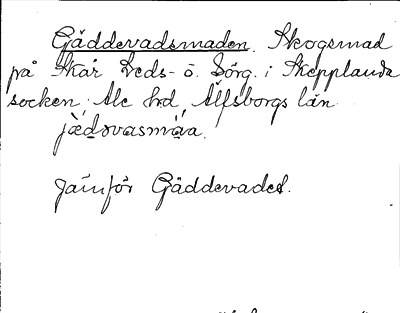 Gäddevadsmaden. Skogsmad
på Skår Neds- o. Sörg. i Skepplanda
socken. Ale hrd, Älfsborgs län
jædəvasmàa.
Jämför Gäddevadet.